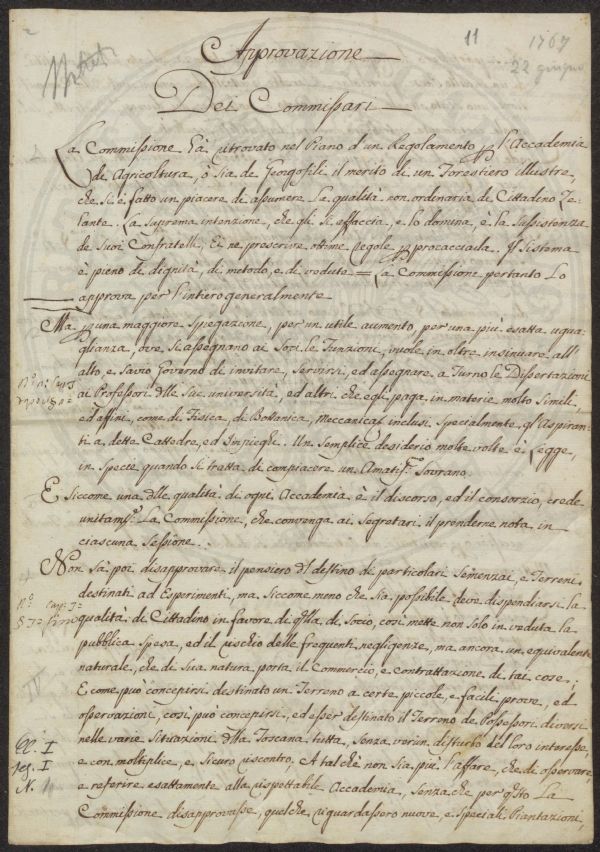 11
1767
22 giugno
Approvazione
Dei Commissari
La Commissione hà ritrovato nel Piano d'un Regolamento p l'Accademia
di Agricoltura, ò sia de Georgofili il merito di un Forestiero illustre,
che si è fatto un piacere di assumere la qualità non ordinaria di Cittadino Ze-
lante. La suprema intenzione, che gli si affaccia, e lo domina, è la sussistenza
de suoi Confratelli, Ei ne prescrive ottime regole p procacciarla. Il Sistema
è pieno di dignità, di metodo, e di vedute = La Commissione pertanto lo
approva per l'intiero generalmente
Ma p una maggiore spiegazione, per un utile aumento, per una più esatta ugua-
glianza, ove si assegnano ai Soci le Funzioni, vuole in oltre insinuare all'
alto, e savio Governo di invitare, servirsi, ed assegnare a Turno le Dissertazioni
ai Professori dlle sue università, ed altri, che egli paga in materie molto simili,
ed affini, come di Fisica, di Bottanica, Meccanica, inclusi specialmente gl'Aspiran-
ti a dette Cattedre, ed Impieghi. Un semplice desiderio molte volte è Legge,
in specie quando si tratta di compiacere un Amatiss.mo Sovrano.
E siccome una dlle qualità di ogni Accademia è il discorso, ed il consorzio, crede
unitam.te La Commissione, che convenga ai Segretari il prenderne nota in
ciascuna sessione.
Non sà poi disapprovare il pensiero del destino di particolari Semenzai, e Terreni
destinati ad Esperimenti, ma siccome meno che sia possibile deve dispendiarsi la
qualità di Cittadino in favore di qlla di Socio, così mette non solo in veduta la
pubblica spesa, ed il rischio delle frequenti negligenze, ma ancora un equivalente
naturale, che di sua natura porta il Commercio, e contrattazione di tai cose;
E come può concepirsi destinato un Terreno a certe piccole, e facili prove, ed
osservazioni, così può concepirsi, ed esser destinato il Terreno de Possessori diversi
nelle varie situazioni dlla Toscana tutta, senza verun disturbo del loro interesse,
e con moltiplice, e sicuro riscontro; A tal chè non sia più l'affare, che di osservare,
e referire esattamente alla rispettabile Accademia, senza che per qsto La
Commissione disapprovasse, quel che riguardassero nuove, e speciali Piantazioni,
N.o
N.o
IV
Cl. I
seg. I
N. 1